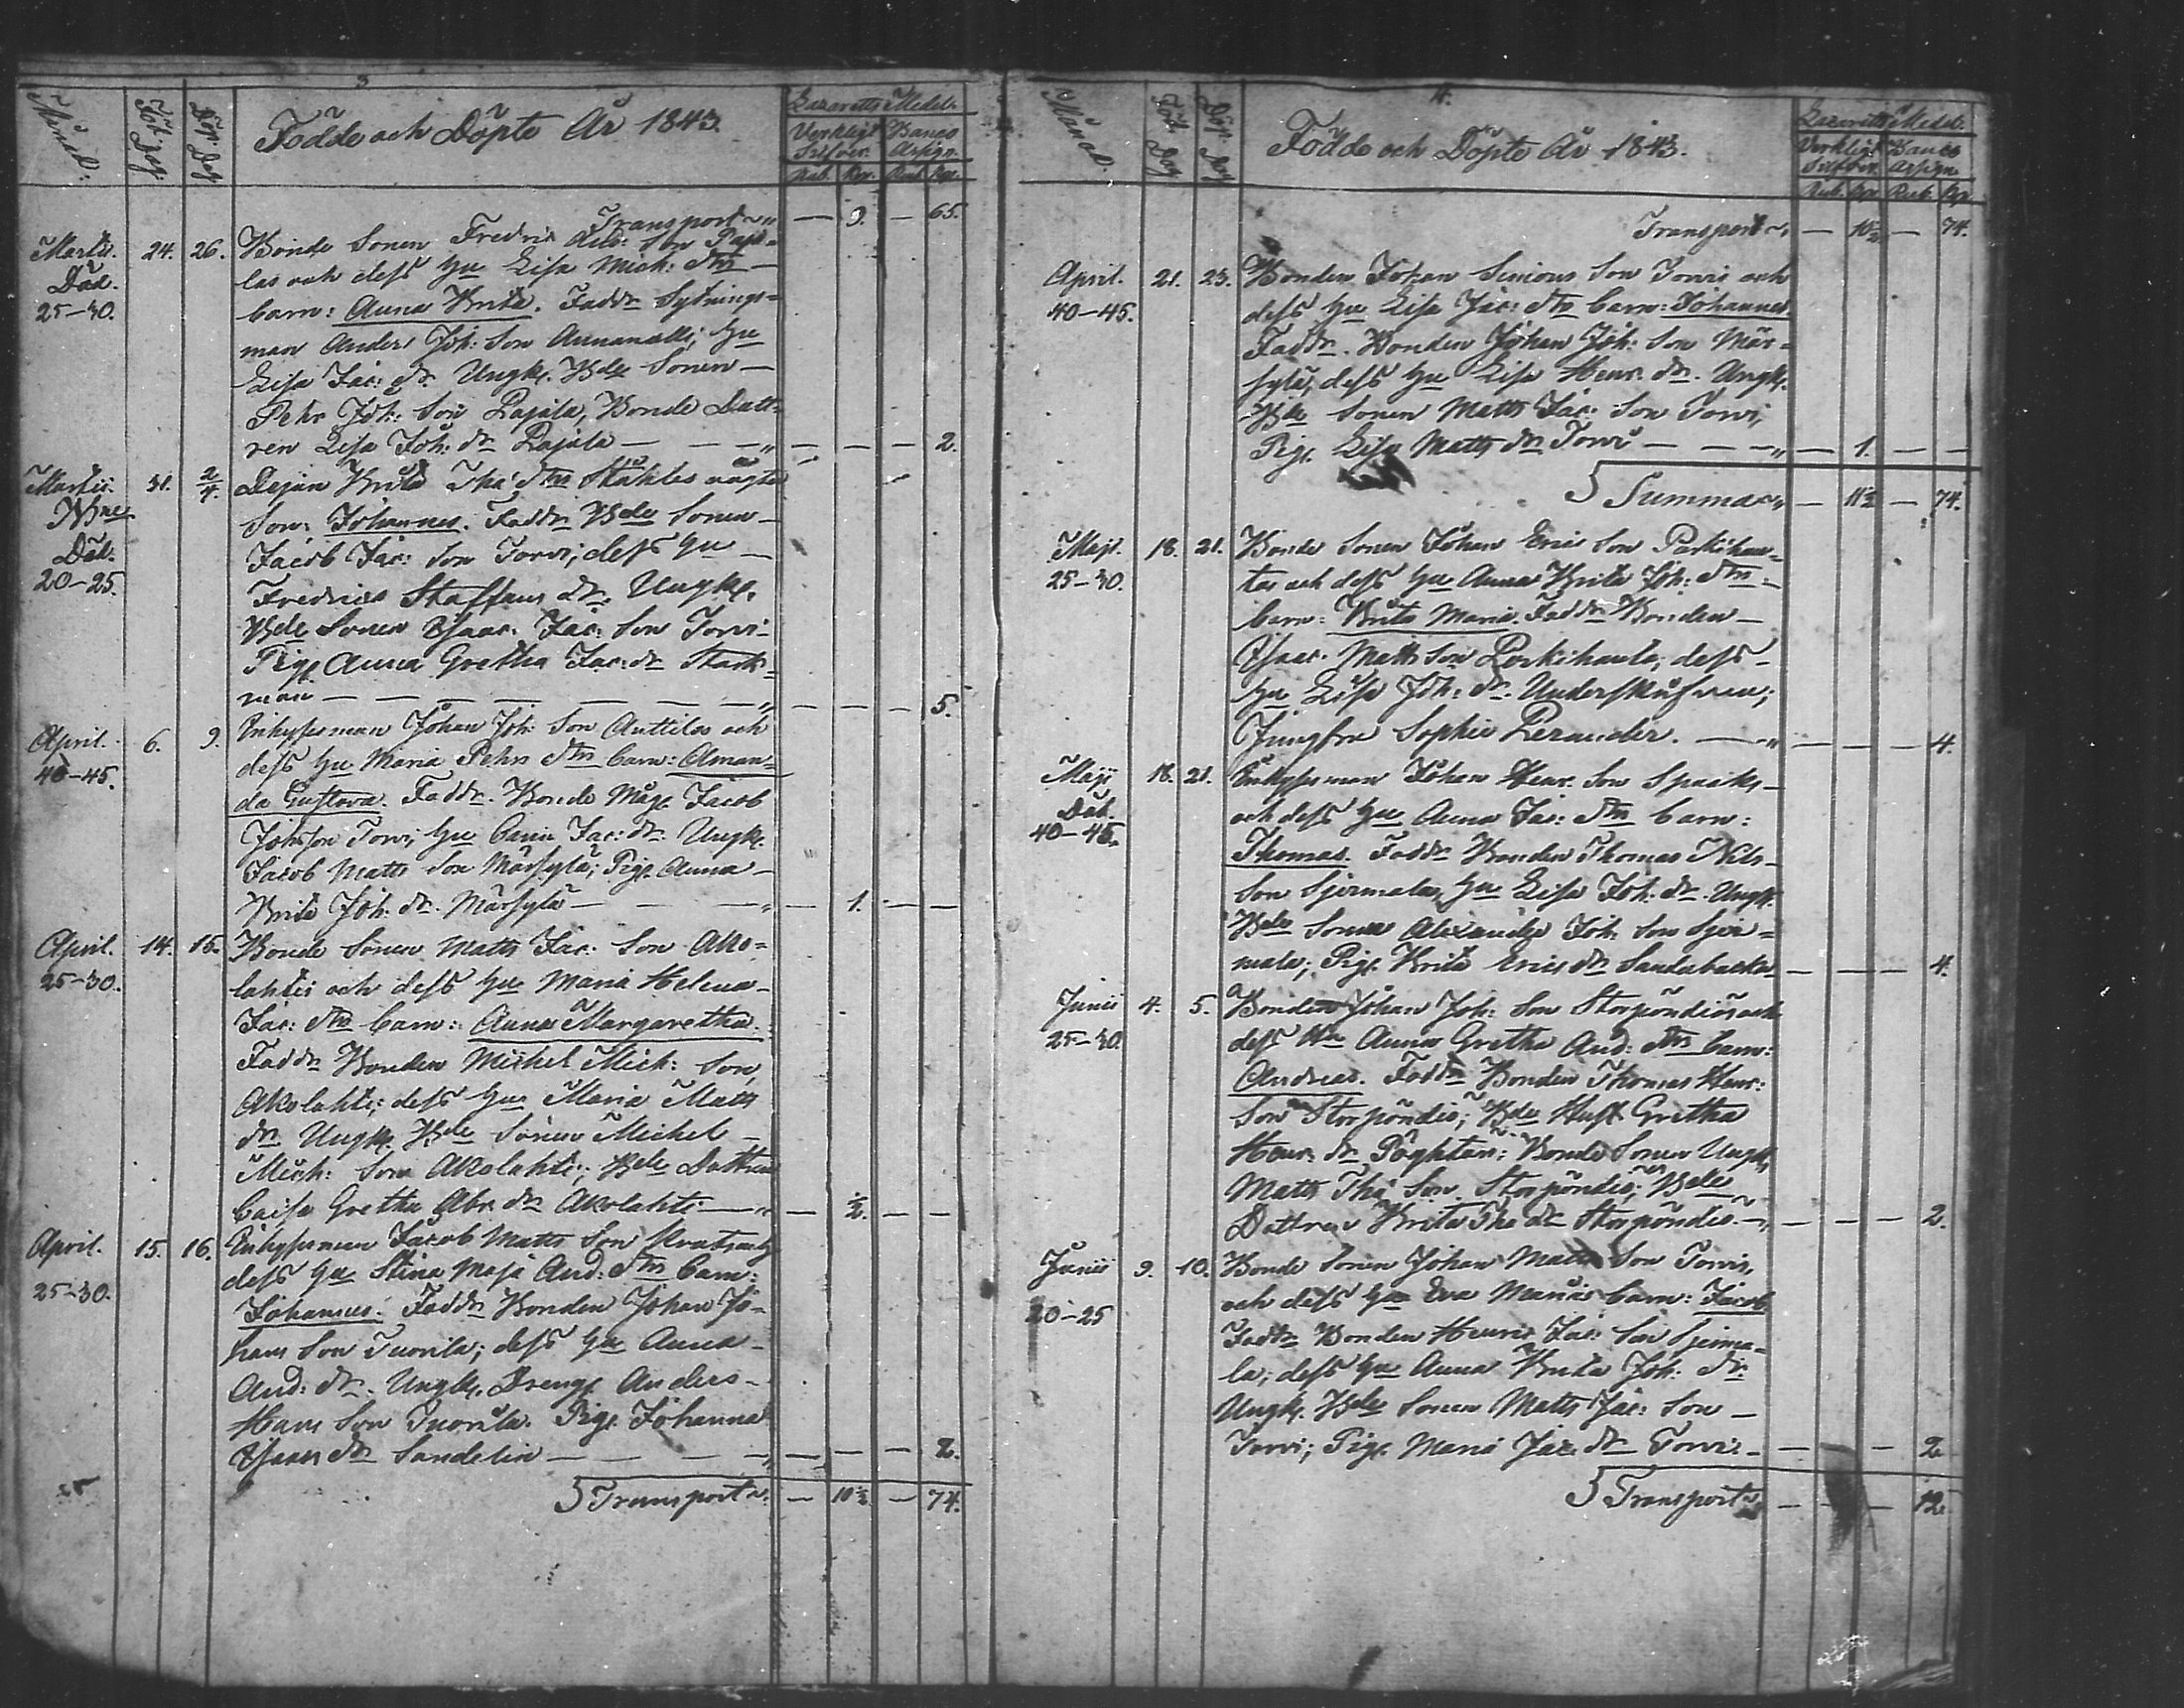 3
Månad. Föd. Dag. Döp. Dag Födde och Döpte År 1843. Lazaretts Medel.
Verkligt Silfver. Banco Assign.
Rub. Kop. Rub. Kop.
Transport — 9. — 65.
Martii. 24. 26. Bonde Sonen Fredric And: Son Paju-
Död. las och dess Hu Lisa Mich: dtrs —
25-30. barn: Anna Brita. Faddr. Sytnings-
man Anders Joh: Son Annanolli; Hu
Lisa Jac: dr. Ungk. Bde Sonen —
Pehr Joh: Son Pajula, Bonde Dott-
ren Lisa Joh: dr Pajula — — — — — 2.
Martii. 31. 2/4. Pejan Brita Tho: dtrs Ståhles oägta
Son: Johannes. Faddr. Bde Sonen —
Död. Jacob Jac: Son Torvi; dess Hu —
20-25. Fredrica Staffans dr. Ungk.
Bde Sonen Isaac Jac: Son Torvi
Pig. Anna Gretha Jac: dr Stark-
man — — — — — 5.
April. 6. 9. Inhyseman Johan Joh: Son Anttilas och
40-45. dess Hu Maria Pehrs dtrs barn: Aman-
da Gustava. Faddr. Bonde Måg. Jacob
Johsson Torvi; Hu Caisa Jac: dr. Ungk.
Jacob Matts Son Märsylä; Pig. Anna —
Brita Joh: dr. Märsylä — — 1. — —
April. 14. 15. Bonde Sonen Matts Jac: Son Ako-
25-30. lahtis och dess Hu Maria Helena
Jac: dtrs barn: Anna Margaretha.
Faddr Bonden Michel Mich: Son
Akolahti; dess Hu Maria Matts
dr. Ungk. Bde Sonen Michel —
Mich: Son Akolahti; Bde Dottren
Caisa Gretha Abr. dr Akolahti — — 1/2. — —
April. 15. 16. Inhyseman Jacob Matts Son
25-30. dess Hu Stina Maja And: dtrs barn:
Johannes. Faddr Bonden Johan Jo-
hans Son Tuorila; dess Hu Anna —
And: dr. Ungk. Dreng. Anders —
Hans Son Tuorila. Pig. Johanna
Isaacs dr Sandelin — — — — — 2.
5 Transport — 10 1/2. — 74.
4.
Månad. Föd. Dag Döp. Dag Födde och Döpte År 1843. Lazaretts Medel.
Verkligt Silfver. Banco Assign.
Rub. Kop. Rub. Kop.
Transport — 10 1/2 — 74.
April. 21. 23. Bonden Johan Simons Son Torvis och
40-45. dess Hu Lisa Jac: dtrs barn: Johannes
Faddr. Bonden Johan Joh: Son Mär-
sylä; dess Hu Lisa Henr. dr. Ungk.
Bde Sonen Matts Jac: Son Torvi;
Pig. Lisa Matts dr Torvi — — 1. — —
5 Summa — 11 1/2 — 74.
Maji. 18. 21. Bonde Sonen Johan Erics Son Porkihau-
25-30. tas och dess Hu Anna Brita Joh: dtrs
barn: Brita Maria. Faddr Bonden —
Isaac Matts Son Porkihauta; dess —
Hu Lisa Joh: dr. Underskåfvren;
Jungfru Sophie Lerander. — — — — 4.
Maji 18. 21. Inhyseman Johan Henr. Son Spaiks —
Död. och dess Hu Anna Jac: dtrs barn:
40-45. Thomas. Faddr Bonden Thomas Nils-
Son Sjermala; Hu Lisa Joh. dr. Ungk.
Bde Sonen Alexander Joh: Son Sjer-
mala; Pig. Brita Erics dr Sandabacka — — — — 4.
Junii 4. 5. Bonden Johan Joh: Son Storpöndiös och
25-30. dess Hu Anna Gretha And: dtrs barn:
Andreas. Faddr Bonden Thomas Henr:
Son Storpöndiö; Bde Hust. Gretha
Henr. dr Påghtar; Bonde Sonen Ungk.
Matts Tho: Son Storpöndiö; Bde
Dottren Brita Tho: dr Storpöndiö. — — — — 2.
Junii 9. 10. Bonde Sonen Johan Matts Son Torvis,
20-25 och dess Hu Eva Mariæ barn: Jacob.
Faddr Bonden Henric Jac: Son Sjerma-
la; dess Hu Anna Brita Joh: dr.
Ungk. Bde Sonen Matts Jac: Son —
Torvi; Pig. Maria Jac: dr Torvi — — — 2
5 Transport — — — 12.